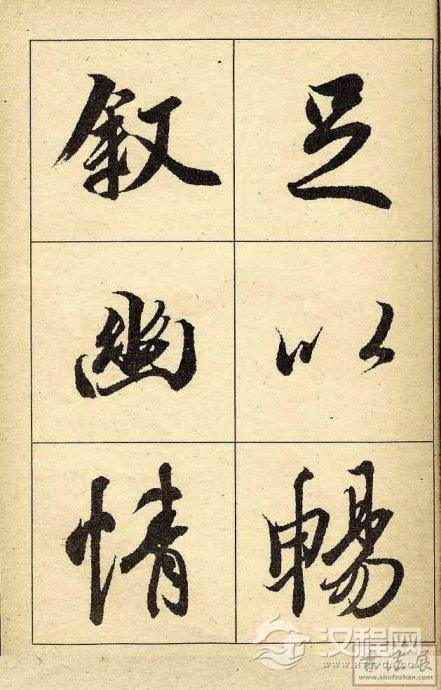 足以暢
敘幽情
汉程网
www.shofazhan.com